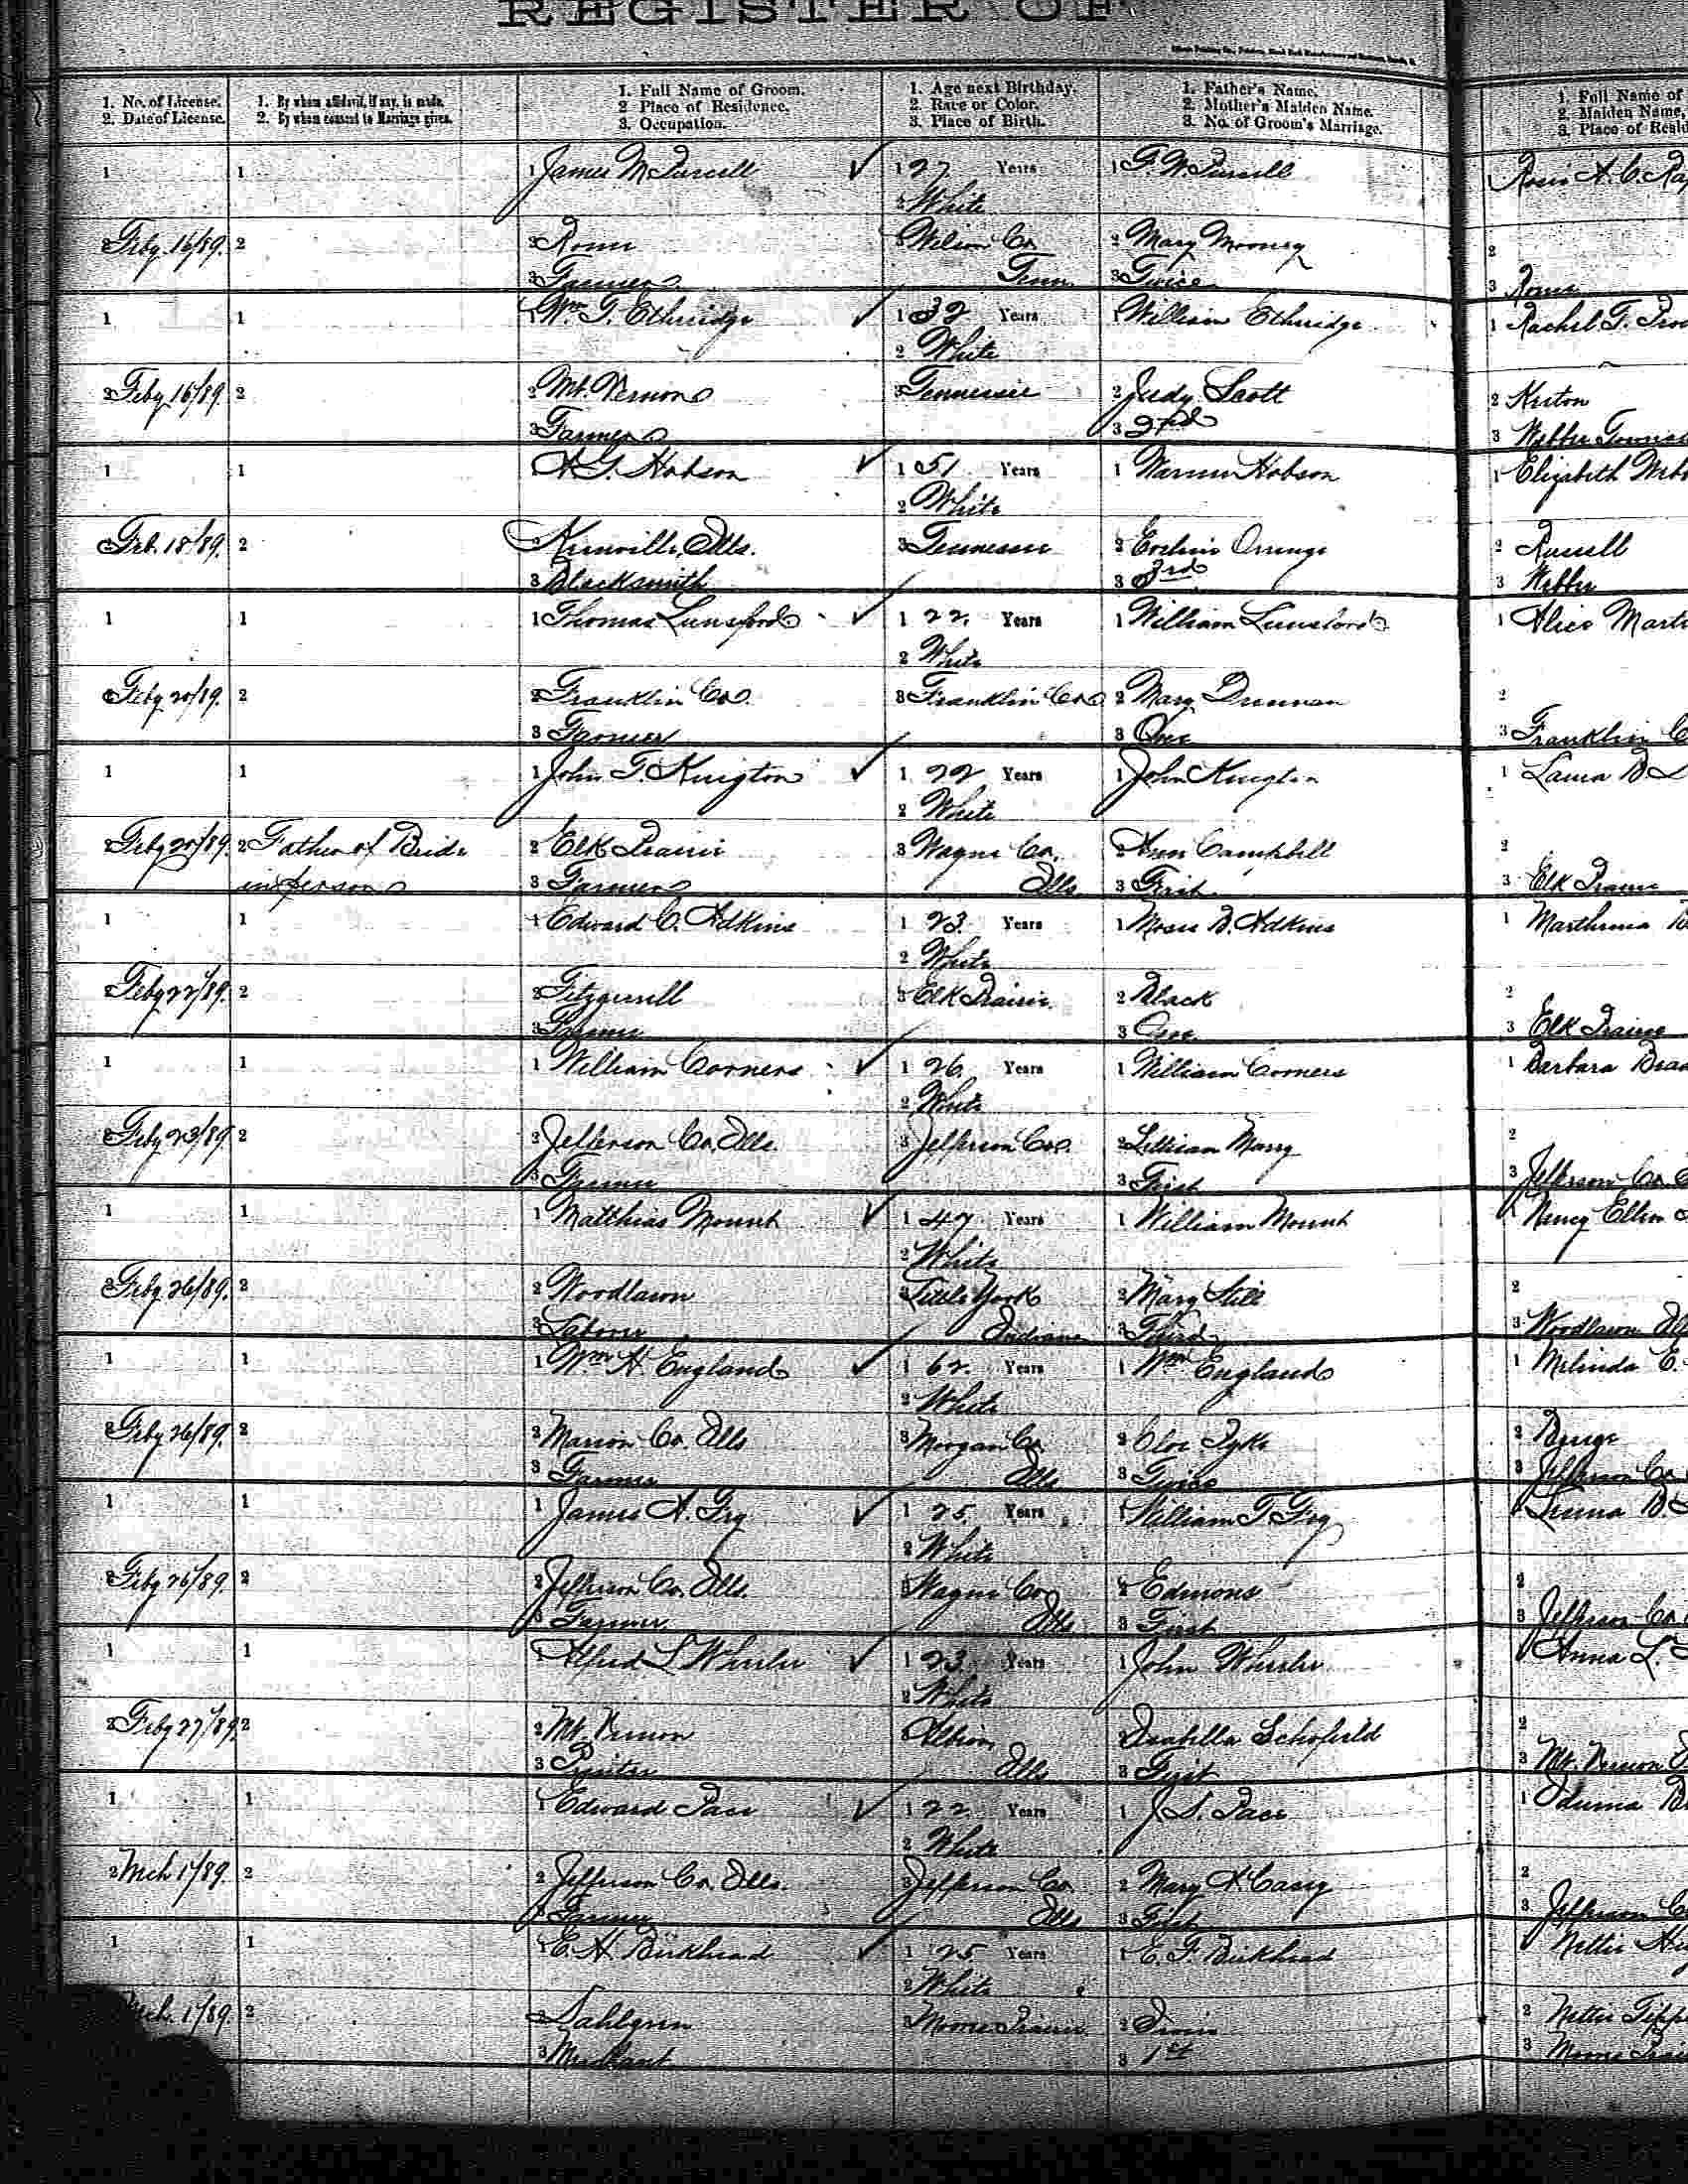 REGISTER OF
1. No. of License. 2. Date of License.
1. By whom affidavit, if any, is made. 2. By whom consent to Marriage given.
1. Full Name of Groom. 2. Place of Residence. 3. Occupation.
1. Age next Birthday. 2. Race or Color. 3. Place of Birth.
1. Father's Name. 2. Mother's Maiden Name. 3. No. of Groom's Marriage.
1. Full Name of 2. Maiden Name, 3. Place of Resid
1 1 1 James M Pursell 1 27 Years 1 F. W. Pursell
2 White
2 Feby. 16/89. 2 2 Rome 3 Wilson Co. 2 Mary Mooney 2
3 Farmer Tenn. 3 Twice 3 Rome
1 1 1 Wm. T. Ethridge 1 32 Years 1 William Ethridge 1 Rachel T.
2 White
2 Feby. 16/89. 2 2 Mt. Vernon 3 Tennessee 2 Judy Scott 2
3 Farmer 3 2nd 3 Webber
1 1 1 Hobson 1 51 Years 1 Hobson 1 Elizabeth
2 White
2 Feb. 18/89. 2 2 Ills. 3 Tennessee 2 2 Russell
3 Blacksmith 3 3rd 3 Webber
1 1 1 Thomas Lunsford 1 22 Years 1 William Lunsford 1 Alice Mart
2 White
2 Feby 20/89. 2 2 Franklin Co. 3 Franklin Co 2 Mary Drennan 2
3 Farmer 3 One 3 Franklin C
1 1 1 John T. Knigton 1 22 Years 1 John Knigton 1 Laura B.
2 White
2 Feby 20/89. 2 Father of Bride 2 Elk Prairie 3 Wayne Co. 2 Ann Campbell 2
in person 3 Farmer Ills 3 First 3 Elk Prairie
1 1 1 Edward C. Adkins 1 23 Years 1 Moses B. Adkins 1
2 White
2 Feby 22/89. 2 2 Fitzgerrell 3 Elk Prairie 2 Black 2
3 Farmer 3 One 3 Elk Prairie
1 1 1 William Corners 1 26 Years 1 William Corners 1 Barbara Brad
2 White
2 Feby 23/89 2 2 Jefferson Co. Ills. 3 Jefferson Co. 2 2
3 Farmer 3 First 3 Jefferson Co.
1 1 1 Matthias Mount 1 47 Years 1 William Mount 1 Nancy Ellen
2 White
2 Feby 26/89. 2 2 Woodlawn 3 Little York 2 Mary Still 2
3 Laborer Indiana 3 Third 3 Woodlawn Ills
1 1 1 Wm H. England 1 62 Years 1 Wm England 1 Melinda E.
2 White
2 Feby 26/89. 2 2 Marion Co. Ills 3 Morgan Co. 2 Cloe 2
3 Farmer Ills 3 Twice 3 Jefferson Co
1 1 1 James A. Fry 1 25 Years 1 William T. Fry 1
2 White
2 Feby 26/89. 2 2 Jefferson Co. Ills. 3 Wayne Co 2 Edmons 2
3 Farmer Ills 3 First 3 Jefferson Co.
1 1 1 Alfred L. Wheeler 1 23 Years 1 John Wheeler 1 Anna L.
2 White
2 Feby 27/89. 2 2 Mt. Vernon 3 Albion, 2 Isabella Schofield 2
3 Printer Ills 3 First 3 Mt. Vernon
1 1 1 Edward Pace 1 22 Years 1 J. S. Pace 1
2 White
2 Mch 1/89. 2 2 Jefferson Co. Ills. 3 Jefferson Co. 2 Mary A. Casey 2
3 Farmer Ills 3 First 3 Jefferson C
1 1 1 E. H. Birkhead 1 25 Years 1 E. F. Birkhead Nettie
2 White
Mch. 1/89. 2 2 Dahlgren 3 Moores Prairie 2 Irvin 2 Nettie
3 Merchant 3 1st 3 Moores Prai